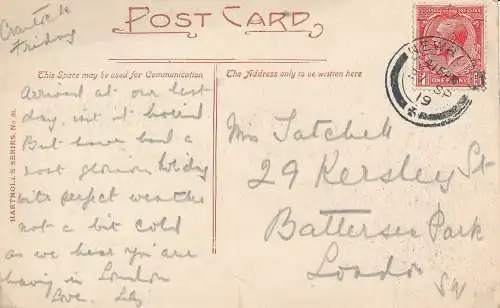 Crantock
Friday
POST CARD
This Space may be used for Communication
The Address only to be written here
HARTNOLL'S SERIES, No.
ONE PENNY
SP
19
Arrived at our last
day, isn't it horrid
But have had a
most glorious holiday
with perfect weather
not a bit cold
as we hear you are
having in London
Love. Lily
Miss Tatchell
29 Kersley St
Battersea Park
London
SW